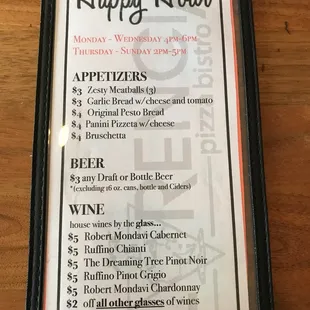 Happy Hour
Monday - Wednesday 4pm-6pm
Thursday - Sunday 2pm-5pm
APPETIZERS
$3 Zesty Meatballs (3)
$3 Garlic Bread w/cheese and tomato
$4 Original Pesto Bread
$4 Panini Pizzeta w/cheese
$4 Bruschetta
BEER
$3 any Draft or Bottle Beer
*(excluding 16 oz. cans, bottle and Ciders)
WINE
house wines by the glass...
$5 Robert Mondavi Cabernet
$5 Ruffino Chianti
$5 The Dreaming Tree Pinot Noir
$5 Ruffino Pinot Grigio
$5 Robert Mondavi Chardonnay
$2 off all other glasses of wines
pizza bistro